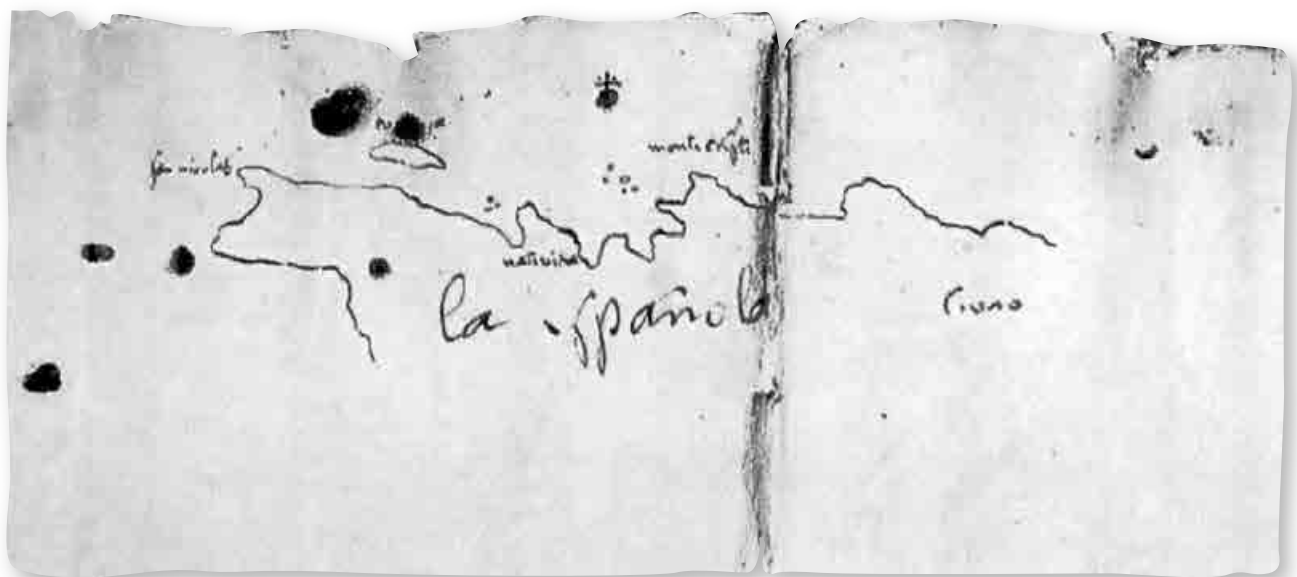 san nicolas
monte cristi
nativida
la española
Civao